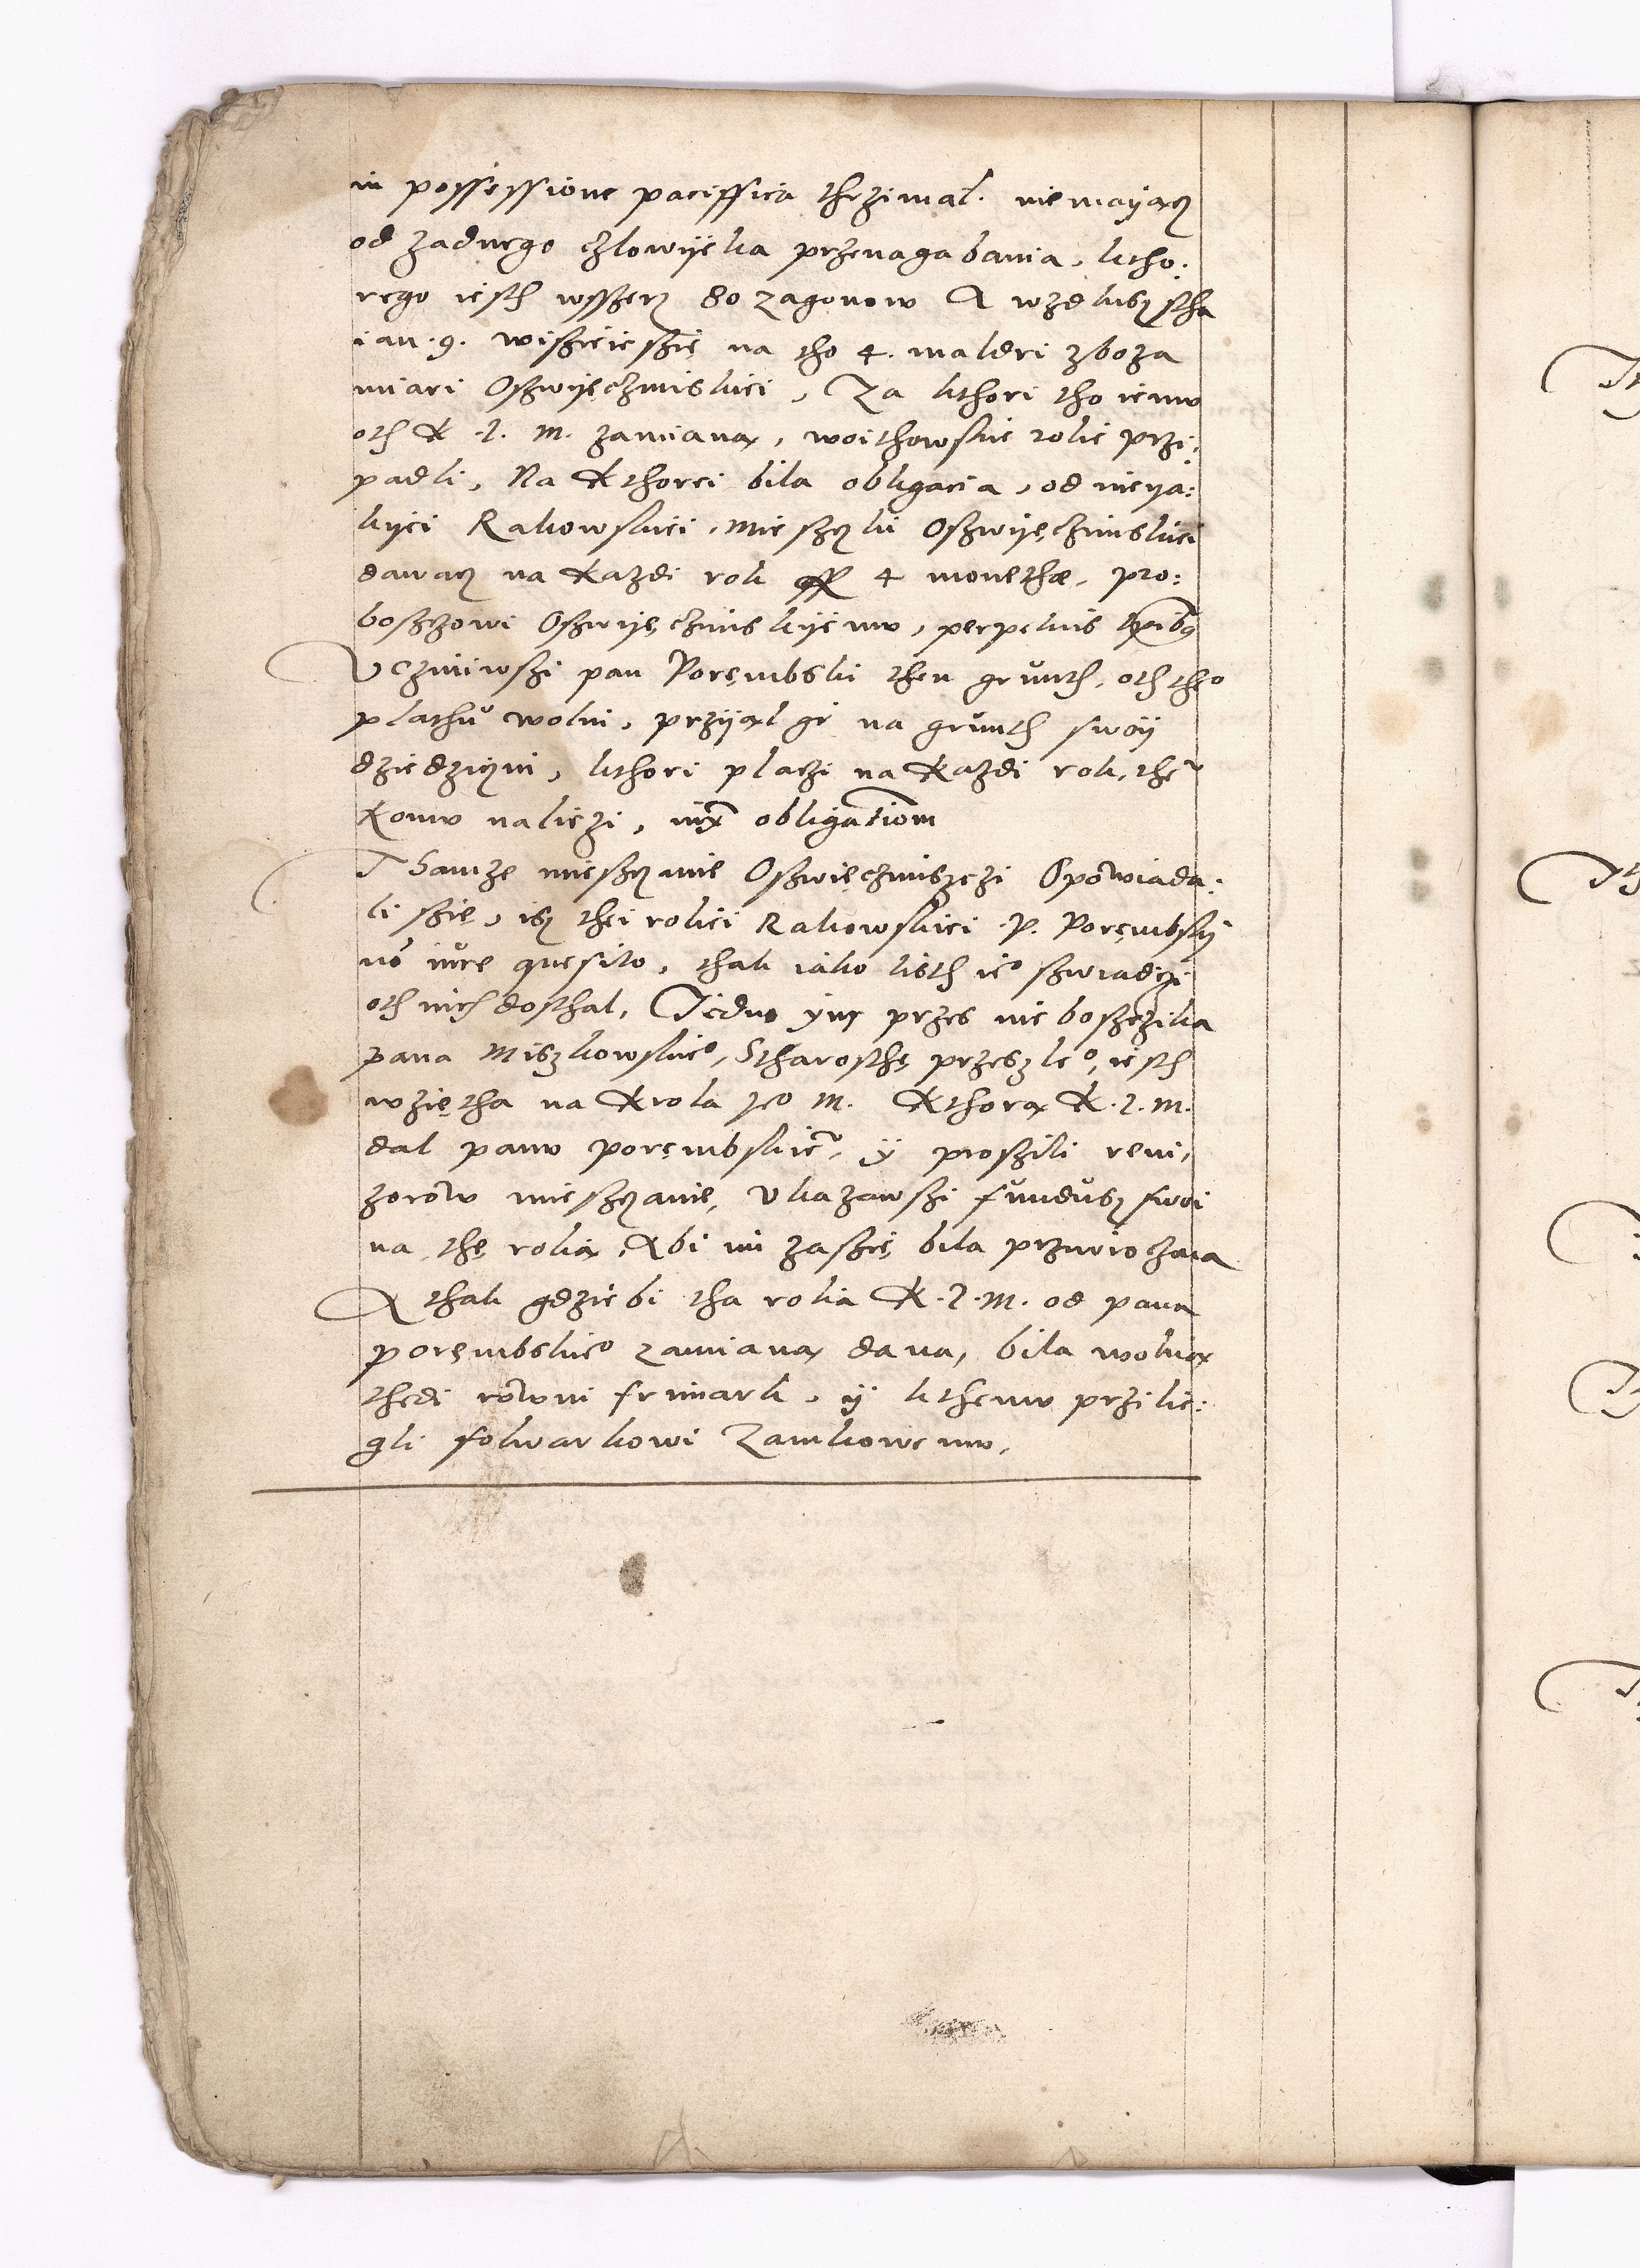 in possessione paciffica thrzimal. niemayącz
od zadnego człowijeka przenagabania, ktho:
rego iesth wsszerz 80 zagonow A wzdlusz stha
ian. 9. wiszieie szię na tho 4. maldri zboza
miari Oszwijęczimskiei, Za kthori tho iemu
oth K. J. M. zamianą, woithowskie rolie przi:
padli, Na Kthorei bila obligacia, od nieya:
kijei Rakowskiei, miesczki Oszwijęczimskiei
dawacz na Kazdi rok 4 monethae, pro:
boszczowi Oszwijęczimskijemu, perpetuis
Vczniwszi pan Porembski then grunth, oth theo
plathu wolni, przijął gi na grunth swoij
dziedziczni, kthori placzi na Kazdi rok, the
Komu nalieży, iux obligationem
Thamze miesczanie Oszwięczimsczi Opowiada:
li szię, isz thei roliei Rakowskiei P. Porembskij
no iure quesito, thak iako listh ieo szwiadczi
oth nich dosthal, Jedno ijusz przes nieboszczika
pana Miszkowskieo, Stharosthę przeszleo, iesth
wzietha na Krola Jeo M. Kthorą K. J. M.
dal panu porembskieu, ij prosżili revi,
zorow miesczanie, Vkazawszi fundusz swoi
na thę rolią, Abi im zaszię bila przwroczona
A thak gdziebi tha rolia K. J. M. od pana
porembskieo zamianą dana, bila wolną
thedi rowni frimark, ij kthemu przilie:
gli folwarkowi Zamkowemu.